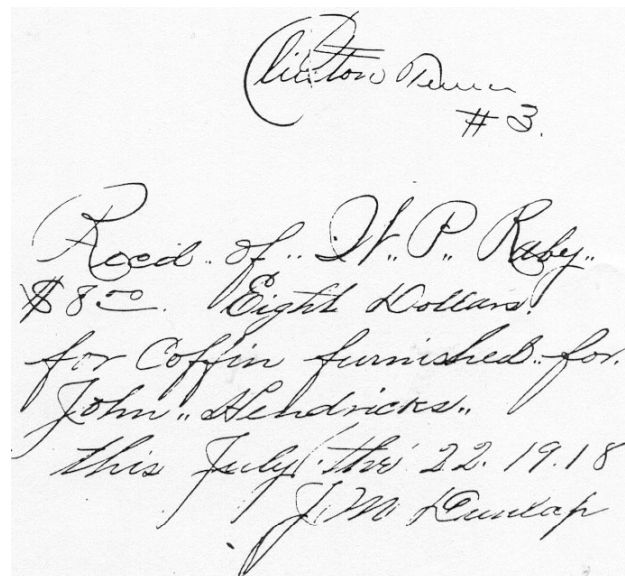 Clinton Tenn
#3.
Recd. of W. P. Raby.
$8 00. Eight Dollars.
for Coffin furnished for.
John Hendricks
this July the 22. 19.18
J. M. Dunlap